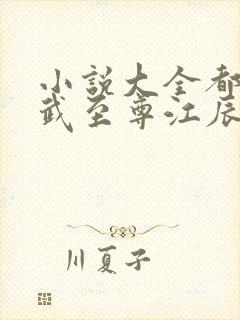 小説大全都
武至尊江辰
川夏子